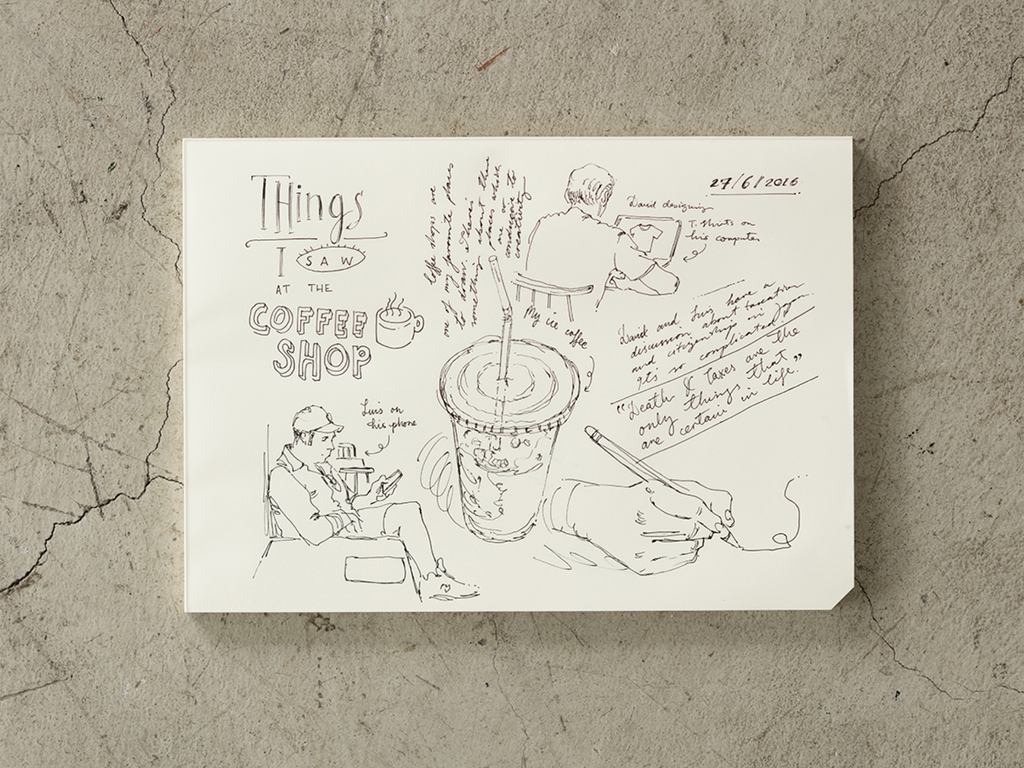 Things
I SAW
AT THE
COFFEE
SHOP
Coffee shops are
one of my favourite places
to draw. There's
something about these
places which
are so
conducive to
creativity
27/6/2016
David designing
T-Shirts on
his computer
My ice coffee
David and Luis have a
discussion about taxation
and citizenship in
It's so complicated!
"Death & taxes are the
only things that
are certain in life."
Luis on
his phone